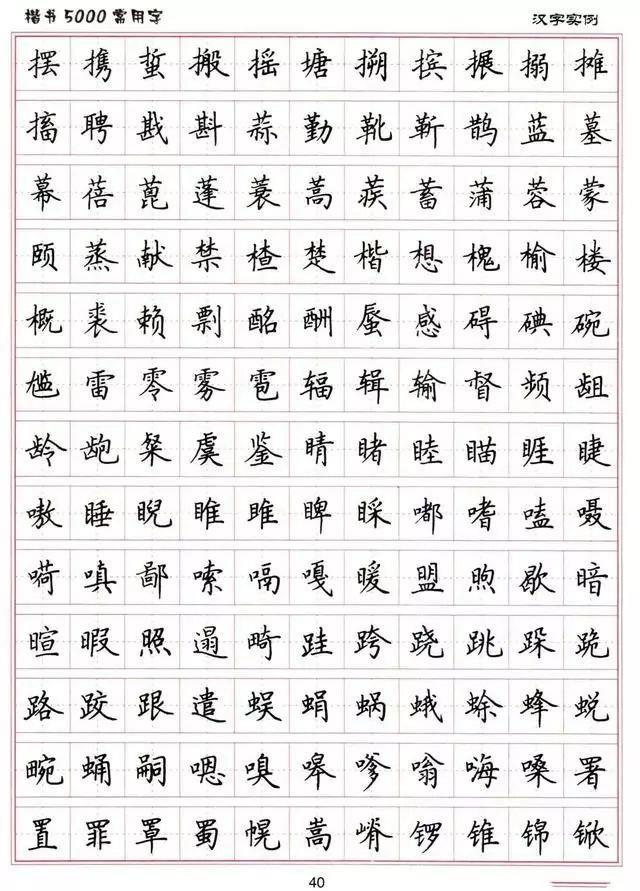 楷书5000常用字 汉字实例
摆 携 蜇 搬 摇 塘 搠 摈 搌 搦 摊
搐 聘 戡 斟 蒜 勤 靴 靳 鹊 蓝 墓
幕 蓓 蓖 蓬 蓑 蒿 蒺 蓄 蒲 蓉 蒙
颐 蒸 献 禁 楂 楚 楷 想 槐 榆 楼
概 裘 赖 剽 酩 酬 蜃 感 碍 碘 碗
尴 雷 零 雾 雹 辐 辑 输 督 频 龃
龄 龅 粲 虞 鉴 睛 睹 睦 瞄 睚 睫
嗷 睡 睨 睢 雎 睥 睬 嘟 嗜 嗑 嗫
嗬 嗔 鄙 嗦 嗝 嘎 暖 盟 煦 歇 暗
暄 暇 照 遢 畸 跬 跨 跷 跳 跺 跪
路 跤 跟 遣 蜈 蜎 蜗 蛾 蜍 蜂 蜕
畹 蛹 嗣 嗯 嗅 嗥 嗲 嗡 嗨 嗓 署
置 罪 罩 蜀 幌 嵩 嵴 锣 锥 锦 锨
40